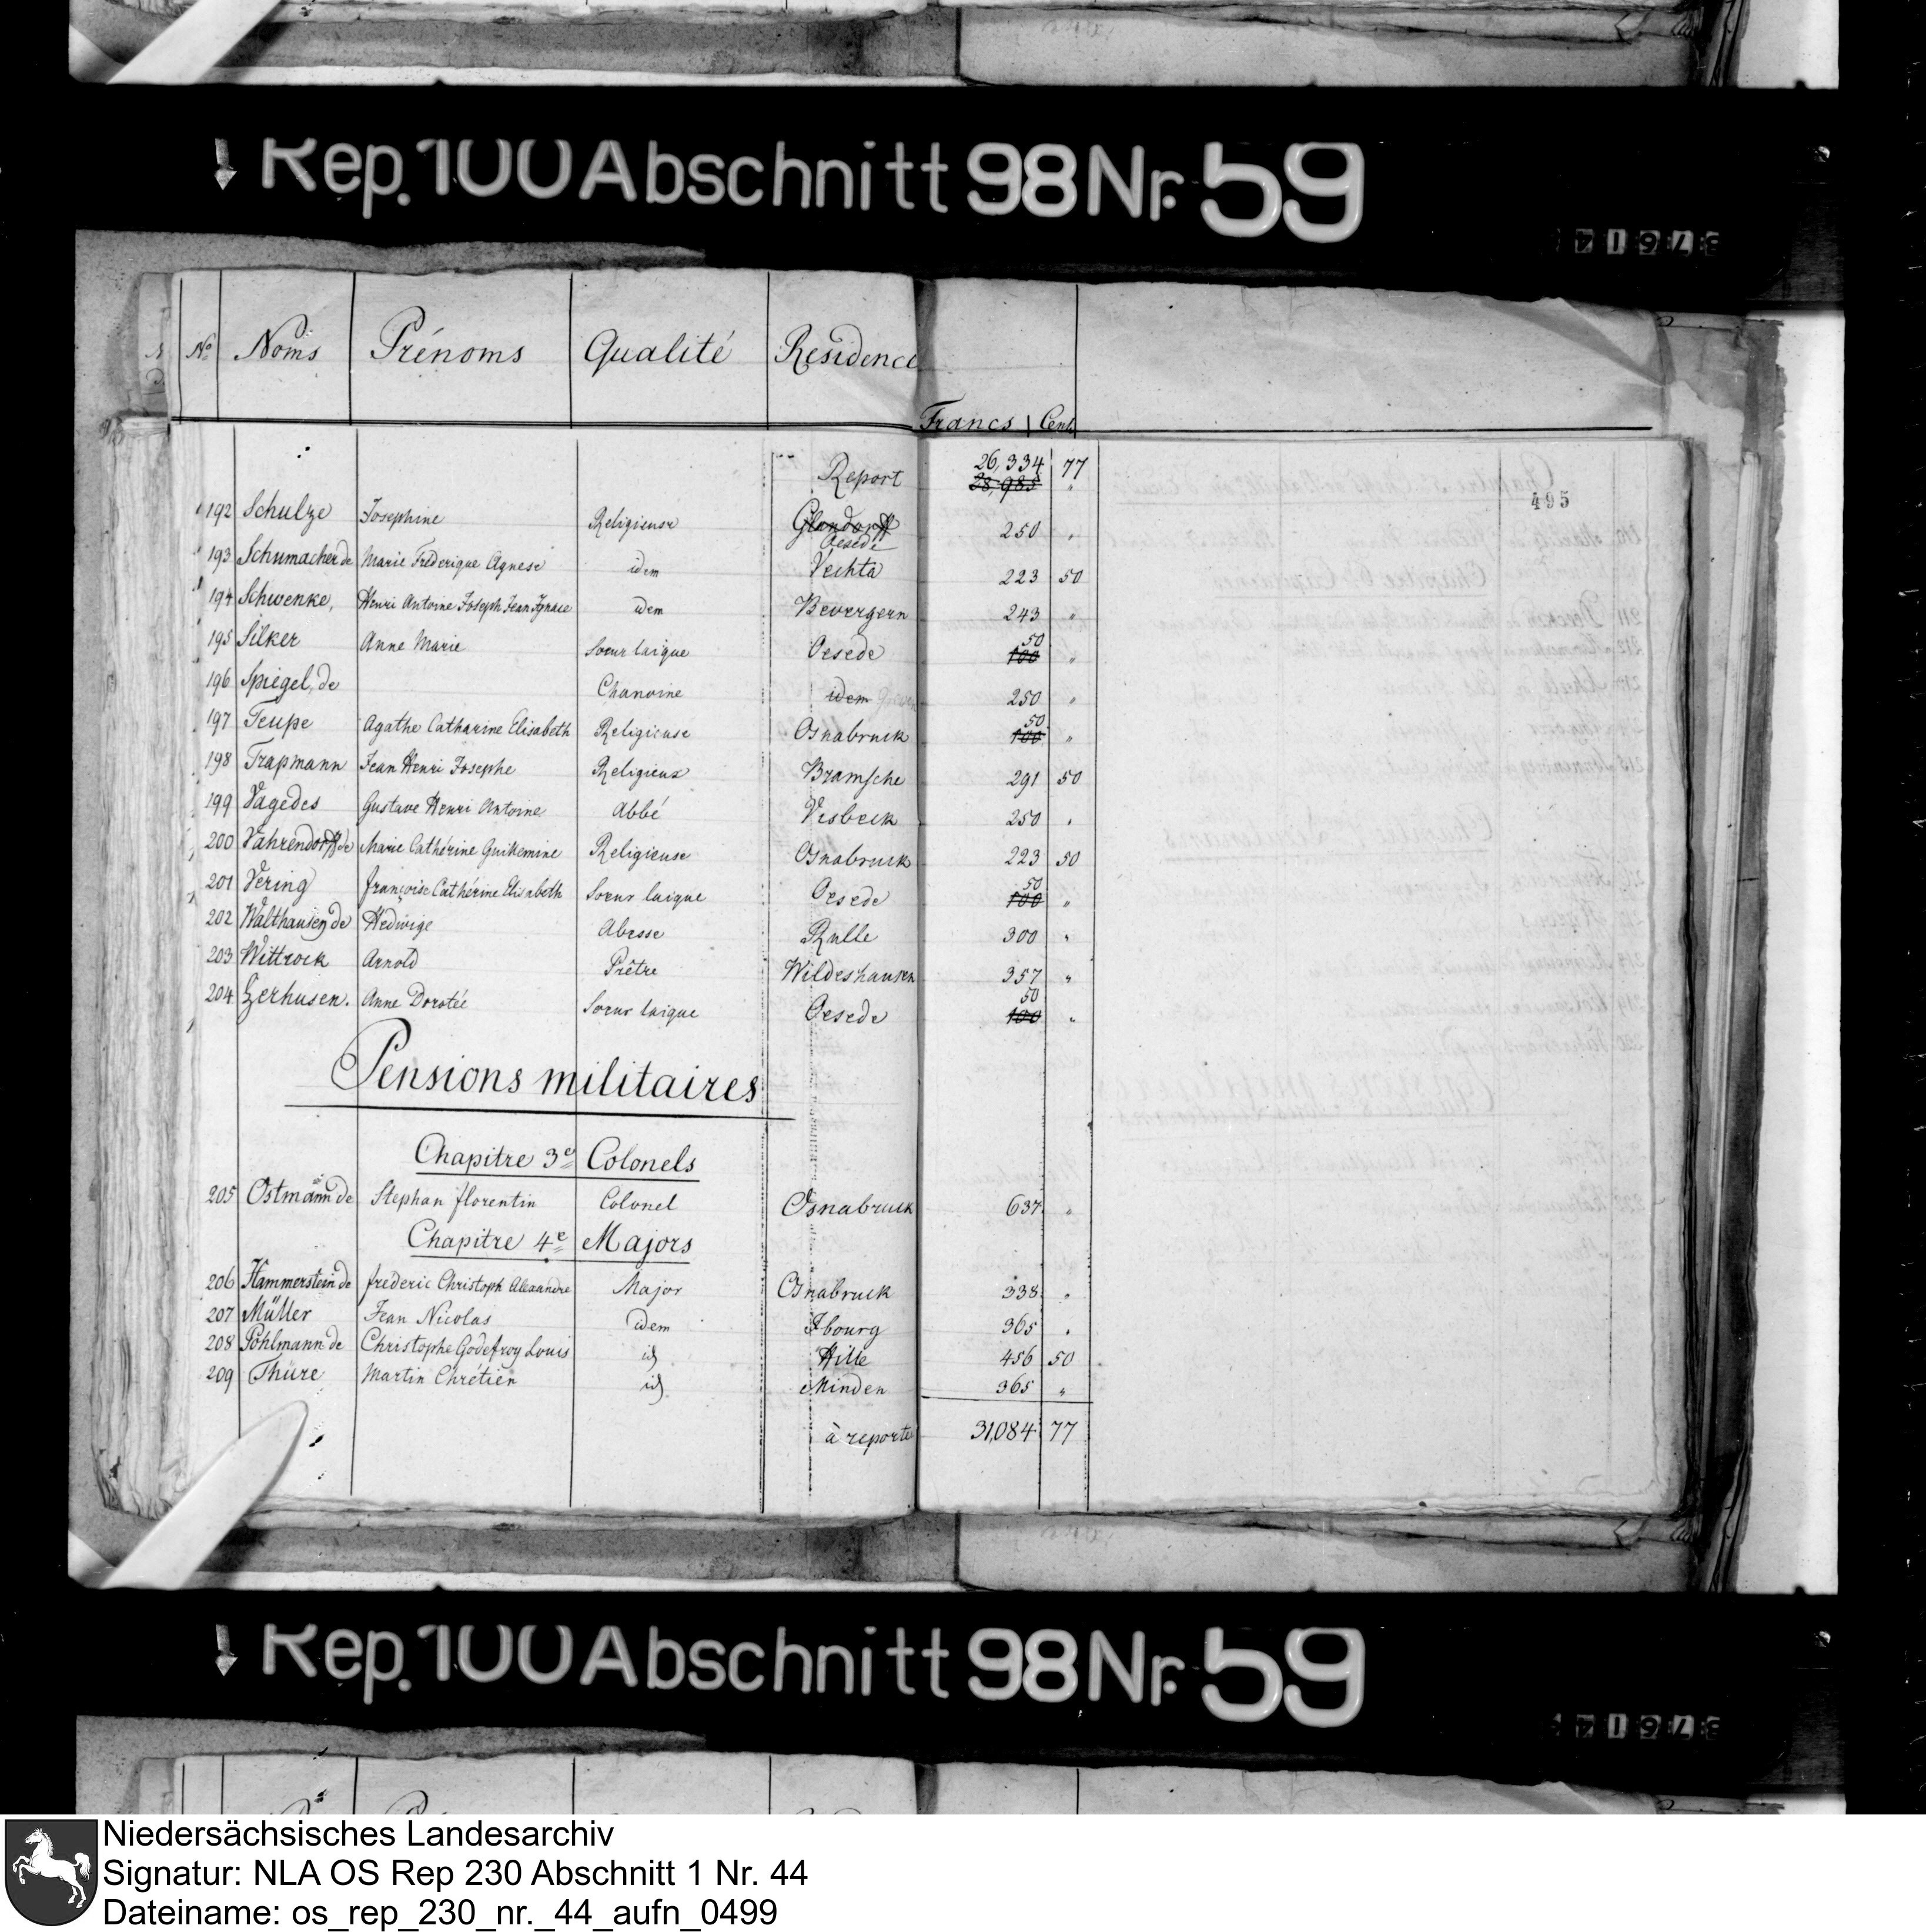 Rep. 100 Abschnitt 98 Nr. 59
Nº Noms Prénoms Qualité Residence
Francs Cent.
Report 26,334 77
28,985 "
495
192 Schulze Josephine Religieuse Glandorff 250 "
Oesede
193 Schumacher de Marie Fréderique Agnese idem Vechta 223 50
194 Schwenke, Henri Antoine Joseph Jean Ignace idem Bevergern 243 "
195 Silker Anne Marie Soeur laique Oesede 50 100 "
196 Spiegel, de Chanoine idem 250 "
197 Teupe Agathe Catharine Elisabeth Religieuse Osnabruck 50 100 "
198 Trapmann Jean Henri Josephe Religieux Bramsche 291 50
199 Vagedes Gustave Henri Antoine Abbé Visbeck 250 "
200 Vahrendorff de Marie Cathérine Guillemine Religieuse Osnabruck 223 50
201 Vering françoise Cathérine Elisabeth Soeur laique Oesede 50 100 "
202 Walthausen de Hedwige Abesse Rulle 300 "
203 Wittrock Arnold Prêtre Wildeshausen 357 "
204 Zerhusen. Anne Dorotée Soeur laique Oesede 50 100 "
Pensions militaires
Chapitre 3e Colonels
205 Ostmann de Stephan florentin Colonel Osnabruck 637 "
Chapitre 4e Majors
206 Hammerstein de frederic Christoph Alexandre Major Osnabruck 338 "
207 Müller Jean Nicolas idem Ibourg 365 "
208 Pöhlmann de Christophe Godefroy Louis id Hille 456 50
209 Thüre Martin Chrétien id Minden 365 "
à reporter 31,084 77
Rep. 100 Abschnitt 98 Nr. 59
Niedersächsisches Landesarchiv
Signatur: NLA OS Rep 230 Abschnitt 1 Nr. 44
Dateiname: os_rep_230_nr._44_aufn_0499